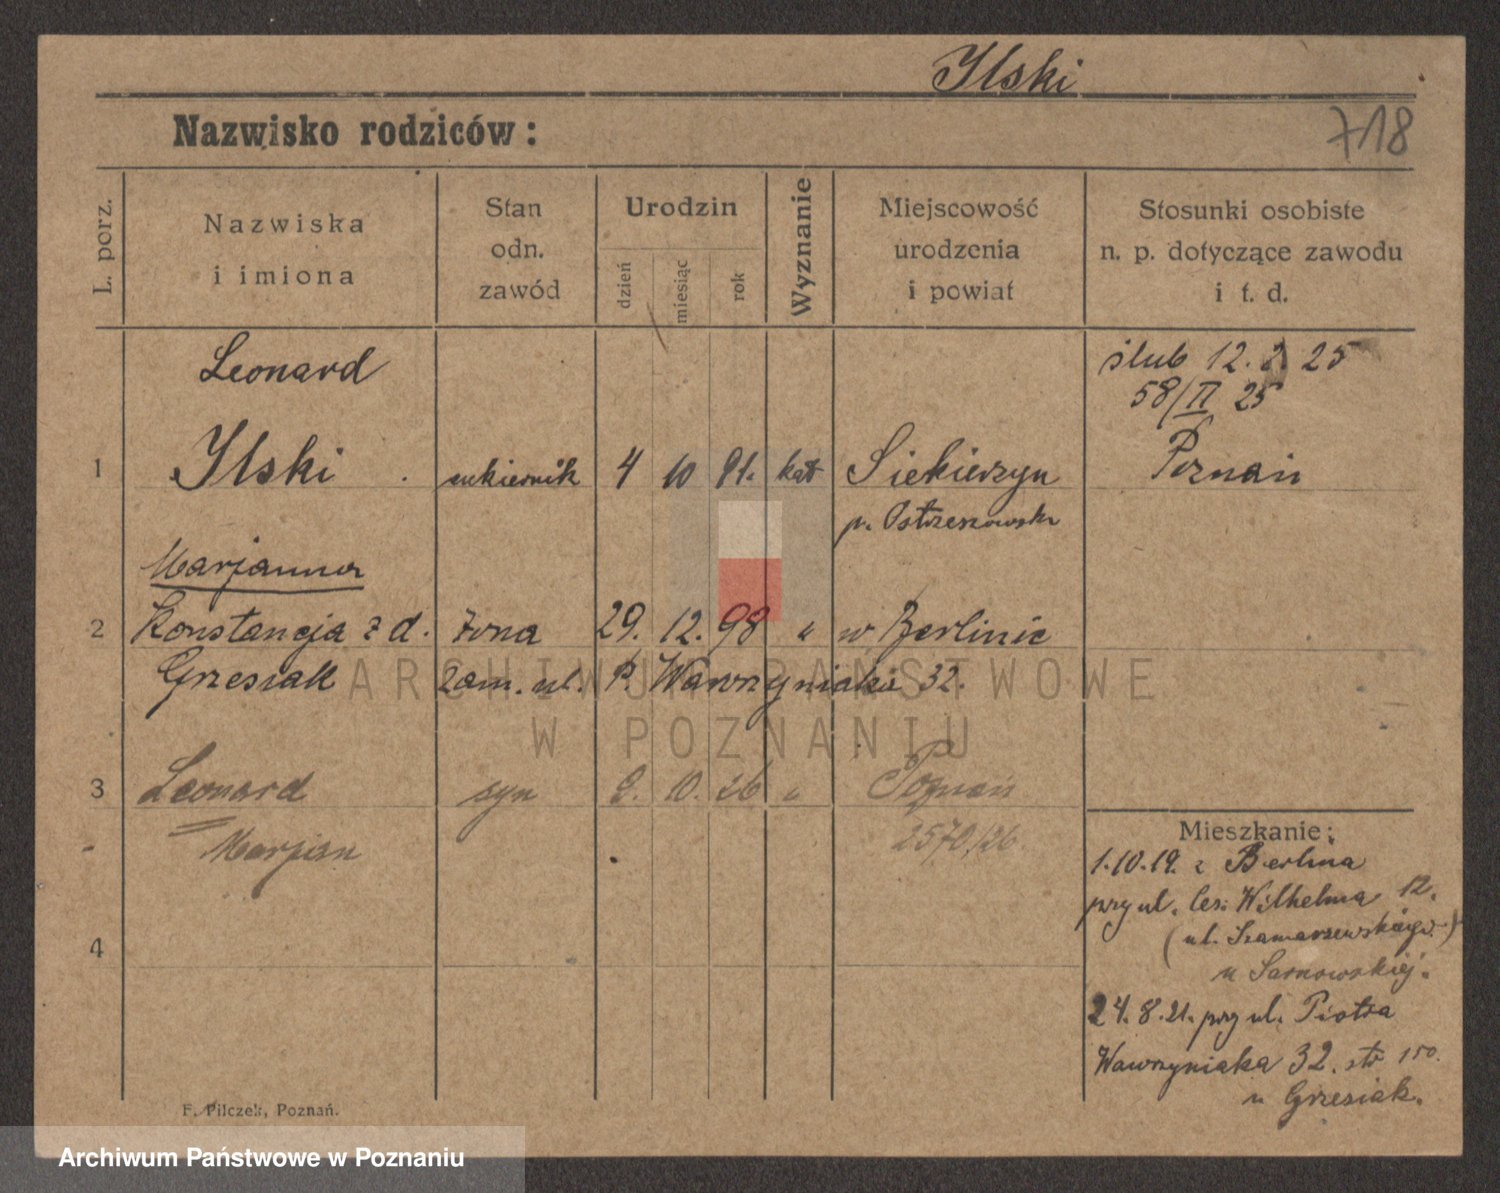 Ilski
718
Nazwisko rodziców:
L. porz.
Nazwiska
i imiona
Stan
odn.
zawód
Urodzin
dzień
miesiąc
rok
Wyznanie
Miejscowość
urodzenia
i powiat
Stosunki osobiste
n. p. dotyczące zawodu
i t. d.
Leonard
ślub 12. 2. 25
58/II 25
Poznań
1 Ilski cukiernik 4 10 91. kat Siekierzyn
p. Ostrzeszowski
Marjanna
2 Konstancja z d. żona 29. 12. 98 " w Berlinie
Grzesiak zam. ul. P. Wawrzyniaka 32.
3 Leonard syn 9. 10. 26 " Poznań
Marjan 2570/26
4
Mieszkanie:
1.10.19. z Berlina
przy ul. Ces. Wilhelma 12.
(ul. Szamarzewskiego)
u Sarnowskiej.
24.8.21. przy ul. Piotra
Wawrzyniaka 32. str 150.
u Grzesiak.
F. Pilczek, Poznań.
ARCHIWUM PAŃSTWOWE
W POZNANIU
Archiwum Państwowe w Poznaniu